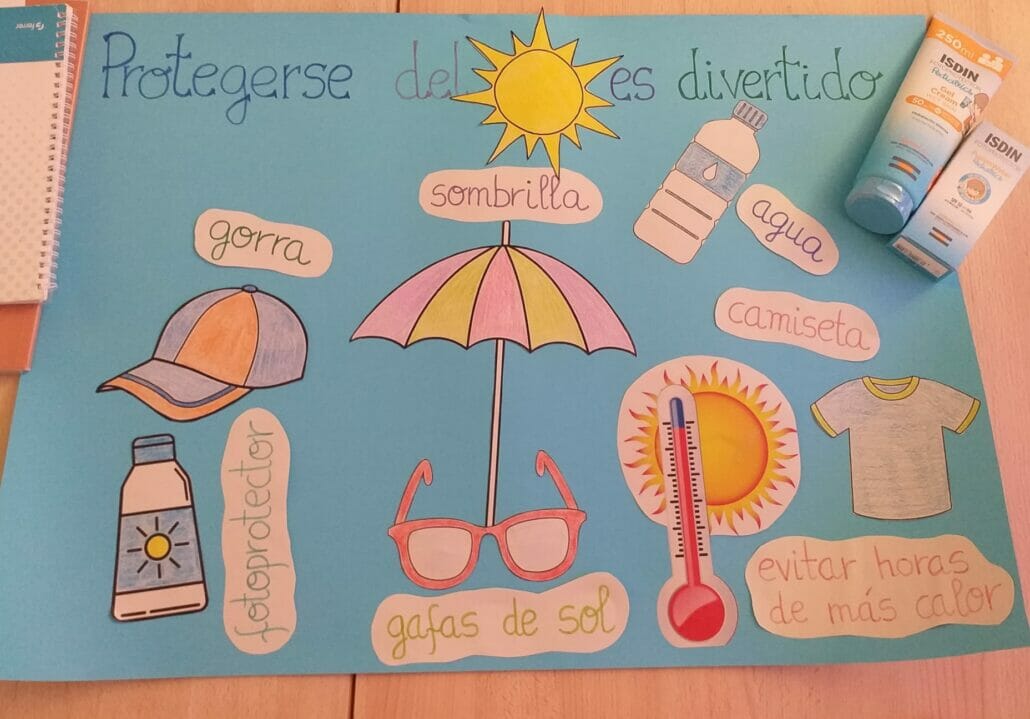 Protegerse del es divertido
ferrer
250 ml
ISDIN
Pediatrics
Gel
Cream
50
ISDIN
Pediatrics
sombrilla
agua
gorra
camiseta
fotoprotector
evitar horas
de más calor
gafas de sol